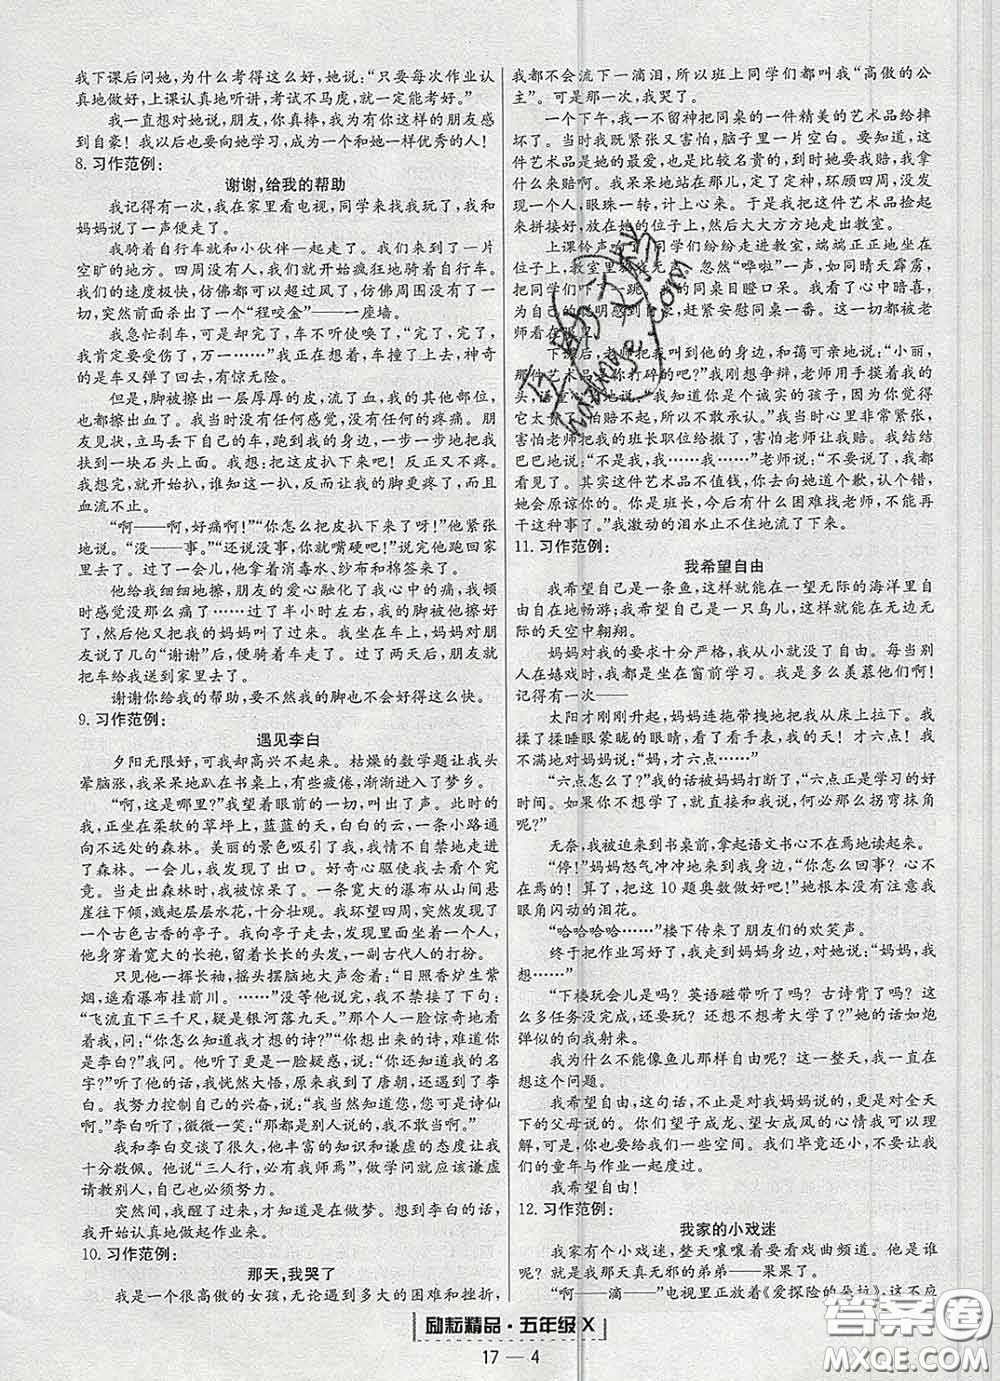 我下课后问她,为什么考得这么好,她说:“只要每次作业认
真地做好,上课认真地听讲,考试不马虎,就一定能考好。”
我一直想对她说,朋友,你真棒,我为有你这样的朋友感
到自豪!我以后也要向她学习,成为一个和她一样优秀的人!
8. 习作范例:
谢谢,给我的帮助
我记得有一次,我在家里看电视,同学来找我玩了,我和
妈妈说了一声便走了。
我骑着自行车就和小伙伴一起走了。我们来到了一片
空旷的地方。四周没有人,我们就开始疯狂地骑着自行车。
我们的速度极快,仿佛都可以超过风了,仿佛周围已经没有人
了,突然前面杀出了一个“程咬金”——一座墙。
我急忙刹车,可是却完了,车不听使唤了,“完了,完了,
我肯定要受伤了,万一……”我正在想着,车撞了上去,神奇
的是车又弹了回去,有惊无险。
但是,脚被擦出一层厚厚的皮,流了血,我的其他部位,
也都擦出了血。我当时没有任何感觉,没有任何的疼痛。
朋友见状,立马丢下自己的车,跑到我的身边,一步一步地把我
扶到一块石头上面。我想:把这皮扒下来吧!反正又不疼。
我想完,就开始扒,谁知道,这一扒,反而让我的脚更疼了,而且
血流不止。
“啊——啊,好痛啊!”“你怎么把皮扒下来了呀!”他紧张
地说。“没——事。”“还说没事,你就嘴硬吧!”说完他跑回家里
去了。过了一会儿,他拿着消毒水、纱布和棉签来了。
他给我细细地擦,朋友的爱心融化了我心中的痛,我顿
时感觉没那么痛了……过了半小时左右,我的脚被他擦好
了,然后他又把我的妈妈叫了过来。我坐在车上,妈妈对朋
友说了几句“谢谢”后,便骑着车走了。过了两天后,朋友便
把车给我送到家里去了。
谢谢你给我的帮助,要不然我的脚也不会好得这么快。
9. 习作范例:
遇见李白
夕阳无限好,可我却高兴不起来。枯燥的数学题让我头
晕脑涨,我呆呆地趴在书桌上,有些疲倦,渐渐进入了梦乡。
“啊,这是哪里?”我望着眼前的一切,叫出了声。此时的
我,正坐在柔软的草坪上,蓝蓝的天,白白的云,一条小路通
向不远处的森林。美丽的景色吸引了我,我情不自禁地走进
了森林。一会儿,我发现了出口。好奇心驱使我去看个究
竟。当走出森林时,我被惊呆了。一条宽大的瀑布从山间悬
崖往下倾,溅起层层水花,十分壮观。我环望四周,突然发现
了一个古色古香的亭子。我向亭子走去,发现有个人在那里,
他身穿着宽大的长袍,留着长长的头发,一副古代人的打扮。
只见他一挥长袖,摇头摆脑地大声念着:“日照香炉生紫
烟,遥看瀑布挂前川。……”没等他说完,我不禁接了下句:
“飞流直下三千尺,疑是银河落九天。”那个人一脸惊奇地看
着我,问:“你怎么知道我才想的诗?”“你想出来的诗,难道你
是李白?”我问。他听了更是一脸疑惑,说:“你还知道我的名
字?”听了他的话,我恍然大悟,原来我到了唐朝,还遇到了李
白。我努力控制自己的兴奋,说:“我当然知道您,您是诗仙
啊。”李白听了,微微一笑:“那都是别人说的,我不敢当啊。”
我和李白交谈了很久,他丰富的知识和谦虚的态度让我
十分敬佩。他说“三人行,必有我师焉”,做学问就应该谦虚
请教别人,自己也必须努力。
突然间,我醒了过来,才知道是在做梦。想到李白的话,
我开始认真地做起作业来。
10. 习作范例:
那天,我哭了
我是一个很高傲的女孩,无论遇到多大的困难和挫折,
我都不会流下一滴泪,所以班上同学们都叫我“高傲的公
主”。可是那一次,我哭了。
一个下午,我一不留神把同桌的一件精美的艺术品给摔
坏了。当时我既紧张又害怕,脑子里一片空白。要知道,
这件艺术品是她的最爱,也是比较名贵的,到时她要我赔,我拿
什么来赔啊。我呆呆地站在那儿,定了定神,环顾四周,一个
人也没有,眼珠一转,计上心来。于是我把这件艺术品捡起
来拼接好,放在她的位子上,然后大大方方地走出教室。
上课铃声 同学们纷纷走进教室,端端正正地坐在
位子上,教室里 忽然“哗啦”一声,如同晴天霹雳,
把同学们吓 跳 同桌目瞪口呆。我看了心中暗喜,
为自己的聪明感到自豪 赶紧安慰同桌一番。这一切都被老
师看在
下课后,老师把我叫到了他的身边,和蔼可亲地说:“小丽,
那件艺术品 你打碎的?”我刚想争辩,老师用手摸着我的
头,语重心长地说,“我知道你是个诚实的孩子,因为你觉得
它太贵 怕赔不起,所以你不敢承认。”我当时心里非常紧张,
害怕老师把我的班长职位给撤了,害怕老师让我赔。我结结
巴巴地说:“不是我,我……我……”老师说:“不要说了,我都
看见了。其实这件艺术品不值钱,你去向她道个歉,认个错,
她会原谅你的。你是班长,今后有什么困难找老师,不能再
干这种事了。”我激动的泪水止不住地流了下来。
11. 习作范例:
我希望自由
我希望自己是一条鱼,这样就能在一望无际的海洋里自
由自在地畅游;我希望自己是一只鸟儿,这样就能在无边无
际的天空中翱翔。
妈妈对我的要求十分严格,我从小就没了自由。每当别
人在嬉戏时,我都是坐在窗前学习。我是多么羡慕他们啊!
记得有一次——
太阳才刚刚升起,妈妈连拖带拽地把我从床上拉下。我
揉了揉睡眼蒙眬的眼睛,看了看手表,我的天!才六点……我
不满地对妈妈说:“妈,才六点……”
“六点怎么了?”我的话被妈妈打断了,“六点正是学习的好
时间。如果你不想学了,就直接和我说,何必那么拐弯抹角
呢?”
无奈,我被迫来到书桌前,拿起语文书心不在焉地读起来。
“停!”妈妈怒气冲冲地来到我身边,“你怎么回事?心不
在焉的!算了,把这10题奥数做好吧!”她根本没有注意我
眼角闪动的泪花。
“哈哈哈哈……”楼下传来了朋友们的欢笑声。
终于把作业写好了,我走到妈妈身边,对她说:“妈妈,我
想……”
“下楼玩会儿是吗?英语磁带听了吗?古诗背了吗?这
么多任务没完成,还要玩?还想不想考大学了?”她的话如炮
弹似的向我射来。
我为什么不能像鱼儿那样自由呢?这一整天,我一直在
想这个问题。
我希望自由,这句话,不止是对我妈妈说的,更是对全天下
的父母说的。你们望子成龙、望女成凤的心情我可以理
解,可也要给我们一些空间。我们毕竟还小,不要让我
们的童年与作业一起度过。
我希望自由!
12. 习作范例:
我家的小戏迷
我家有个小戏迷,整天嚷嚷着要看戏曲频道。他是谁
呢?就是我那天真无邪的弟弟——果果了。
“啊——滴——”电视里正放着《爱探险的朵拉》,这不应
励耘精品·五年级 X
17—4
答案圈
MXQE.COM